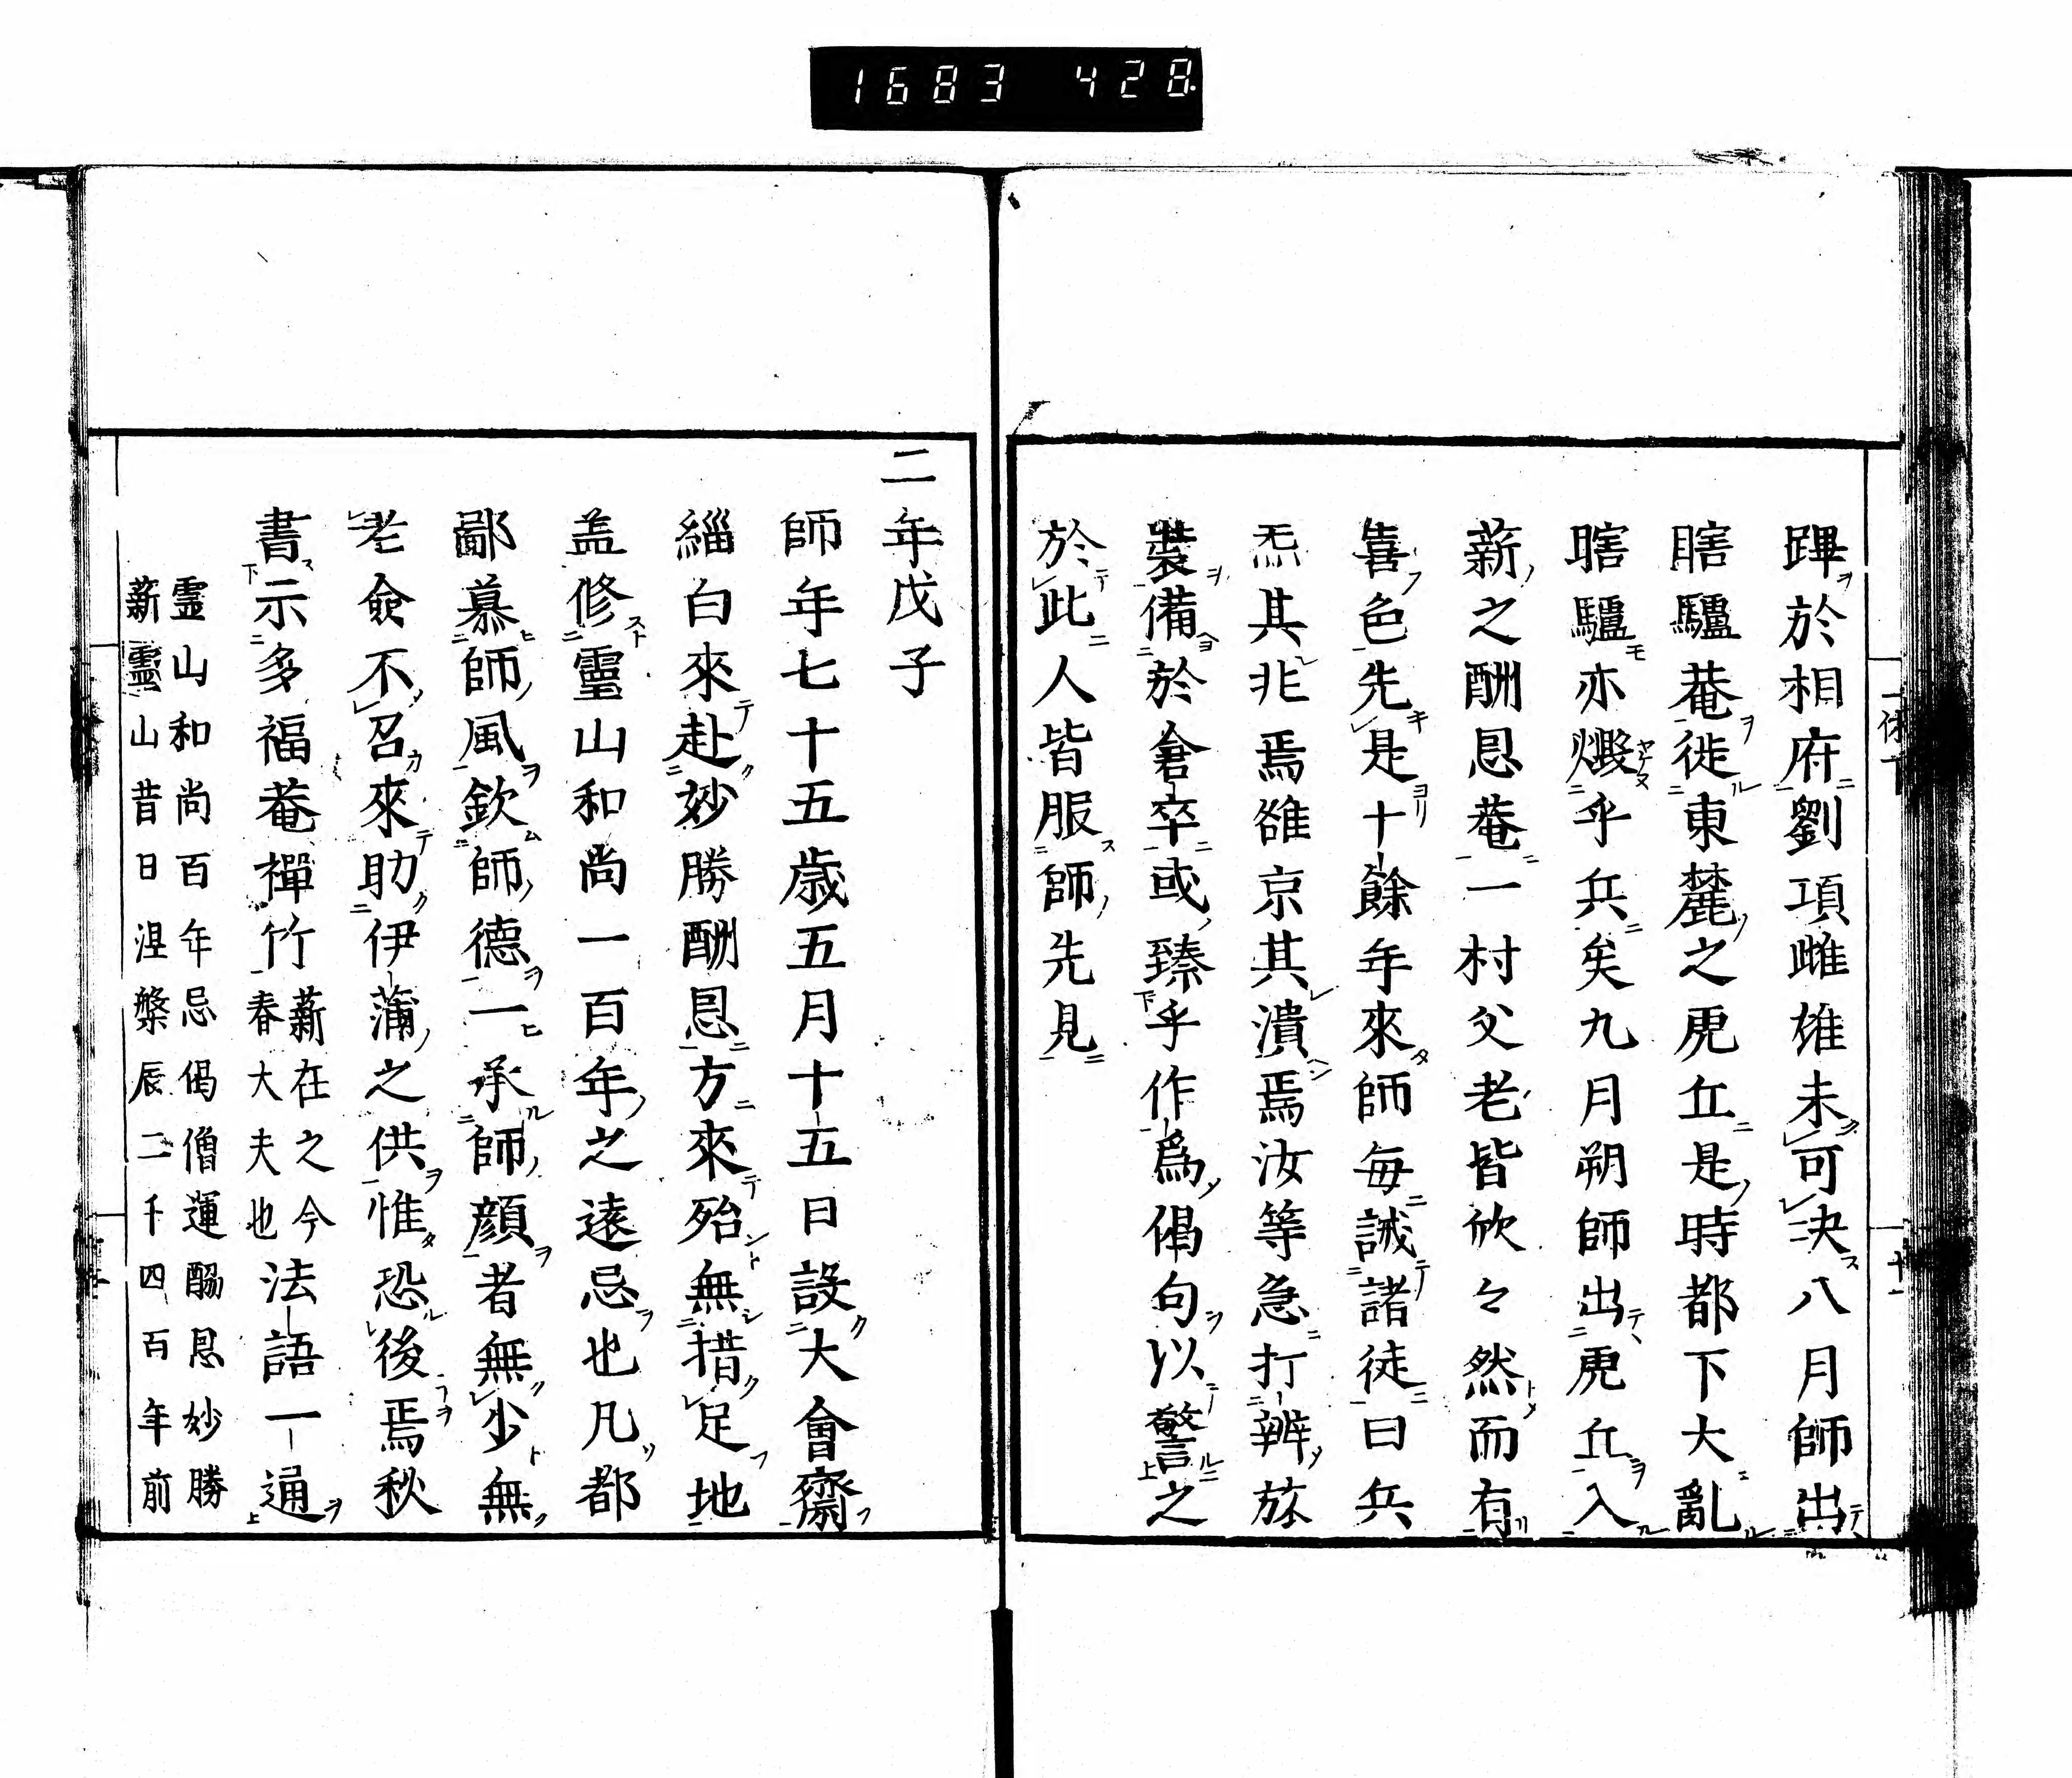 1683 428
蹕於相府劉項雌雄未可決八月師出
瞎驢菴徙東麓之虎丘是時都下大亂
瞎驢亦燬乎兵矣九月朔師出虎丘入
薪之酬恩菴一村父老皆欣々然而有
喜色先是十餘年來師每誡諸徒曰兵
炁其非焉雖京其潰焉汝等急打辨旅
裝備於倉卒或臻乎作爲偈句以警之
於此人皆服師先見
二年戊子
師年七十五歲五月十五日設大會齋
緇白來赴妙勝酬恩方來殆無措足地
盖修靈山和尚一百年之遠忌也凡都
鄙慕師風欽師德一承師顔者無少無
老僉不召來助伊蒲之供惟恐後焉秋
書示多福菴禪竹薪在之今春大夫也法語一通
靈山和尚百年忌偈僧運酬恩妙勝
薪靈山昔日涅槃辰二千四百年前